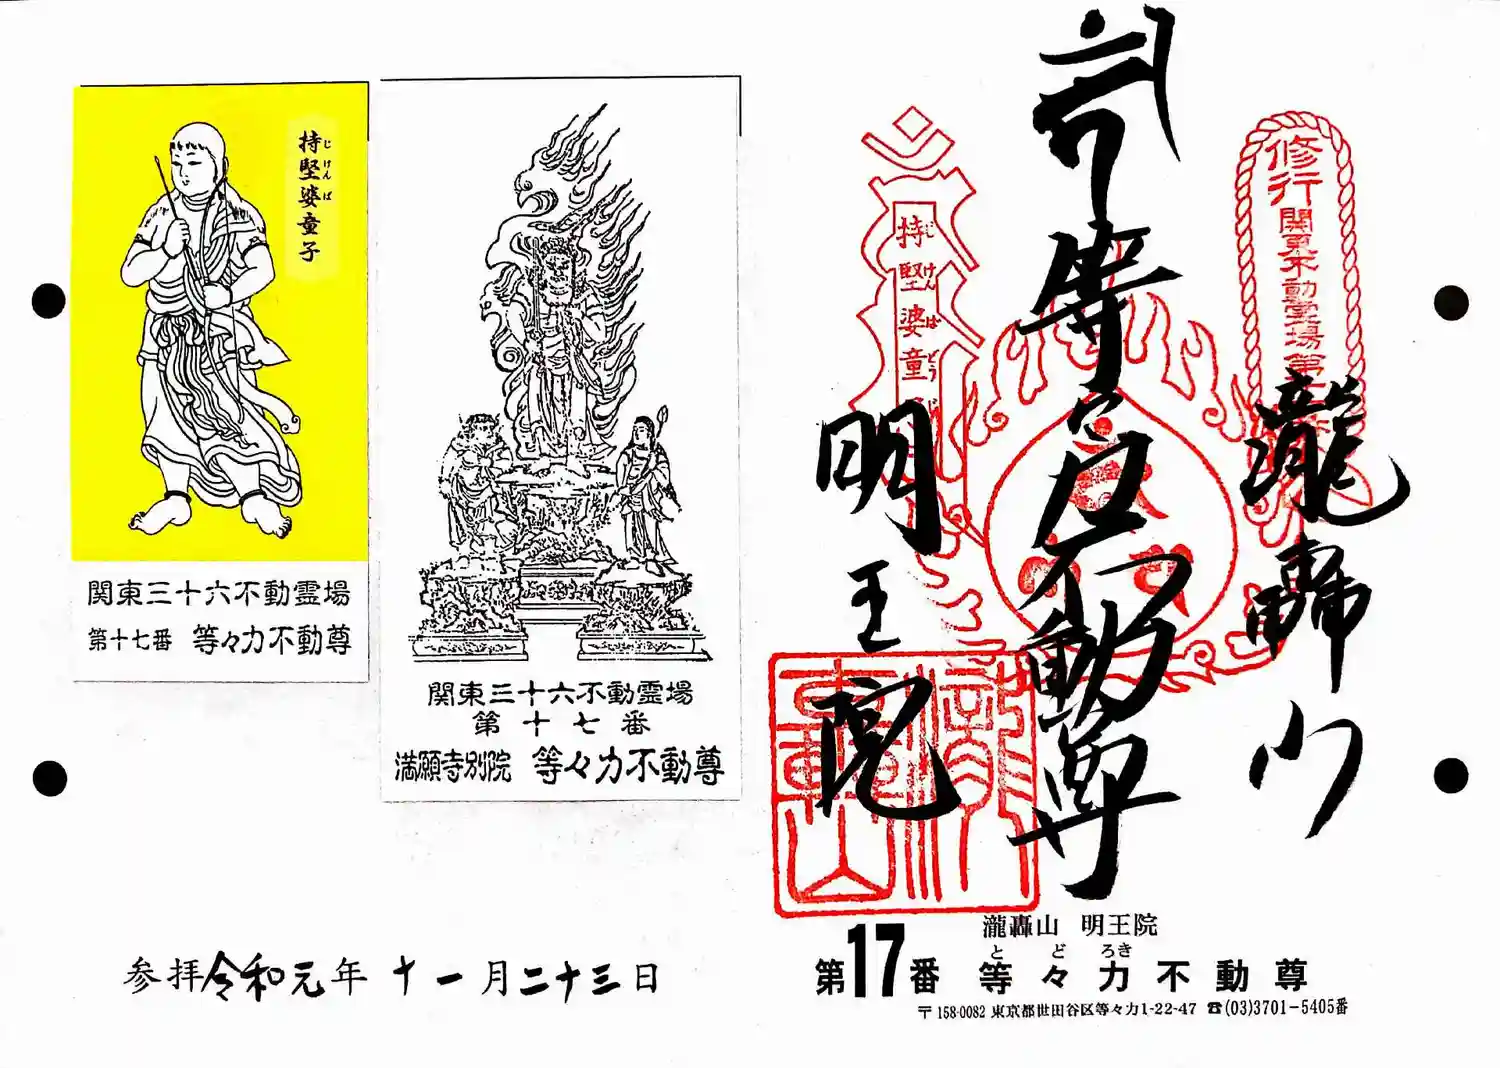 持堅婆童子
じけんば
関東三十六不動霊場
第十七番 等々力不動尊
関東三十六不動霊場
第十七番
満願寺別院 等々力不動尊
参拝令和元年十一月二十三日
修行
関東不動霊場第
持堅婆童
じけんばどう
瀧轟山
等々力不動尊
明王院
瀧轟山
瀧轟山 明王院
とどろき
第17番 等々力不動尊
〒158-0082 東京都世田谷区等々力1-22-47 ☎(03)3701-5405番